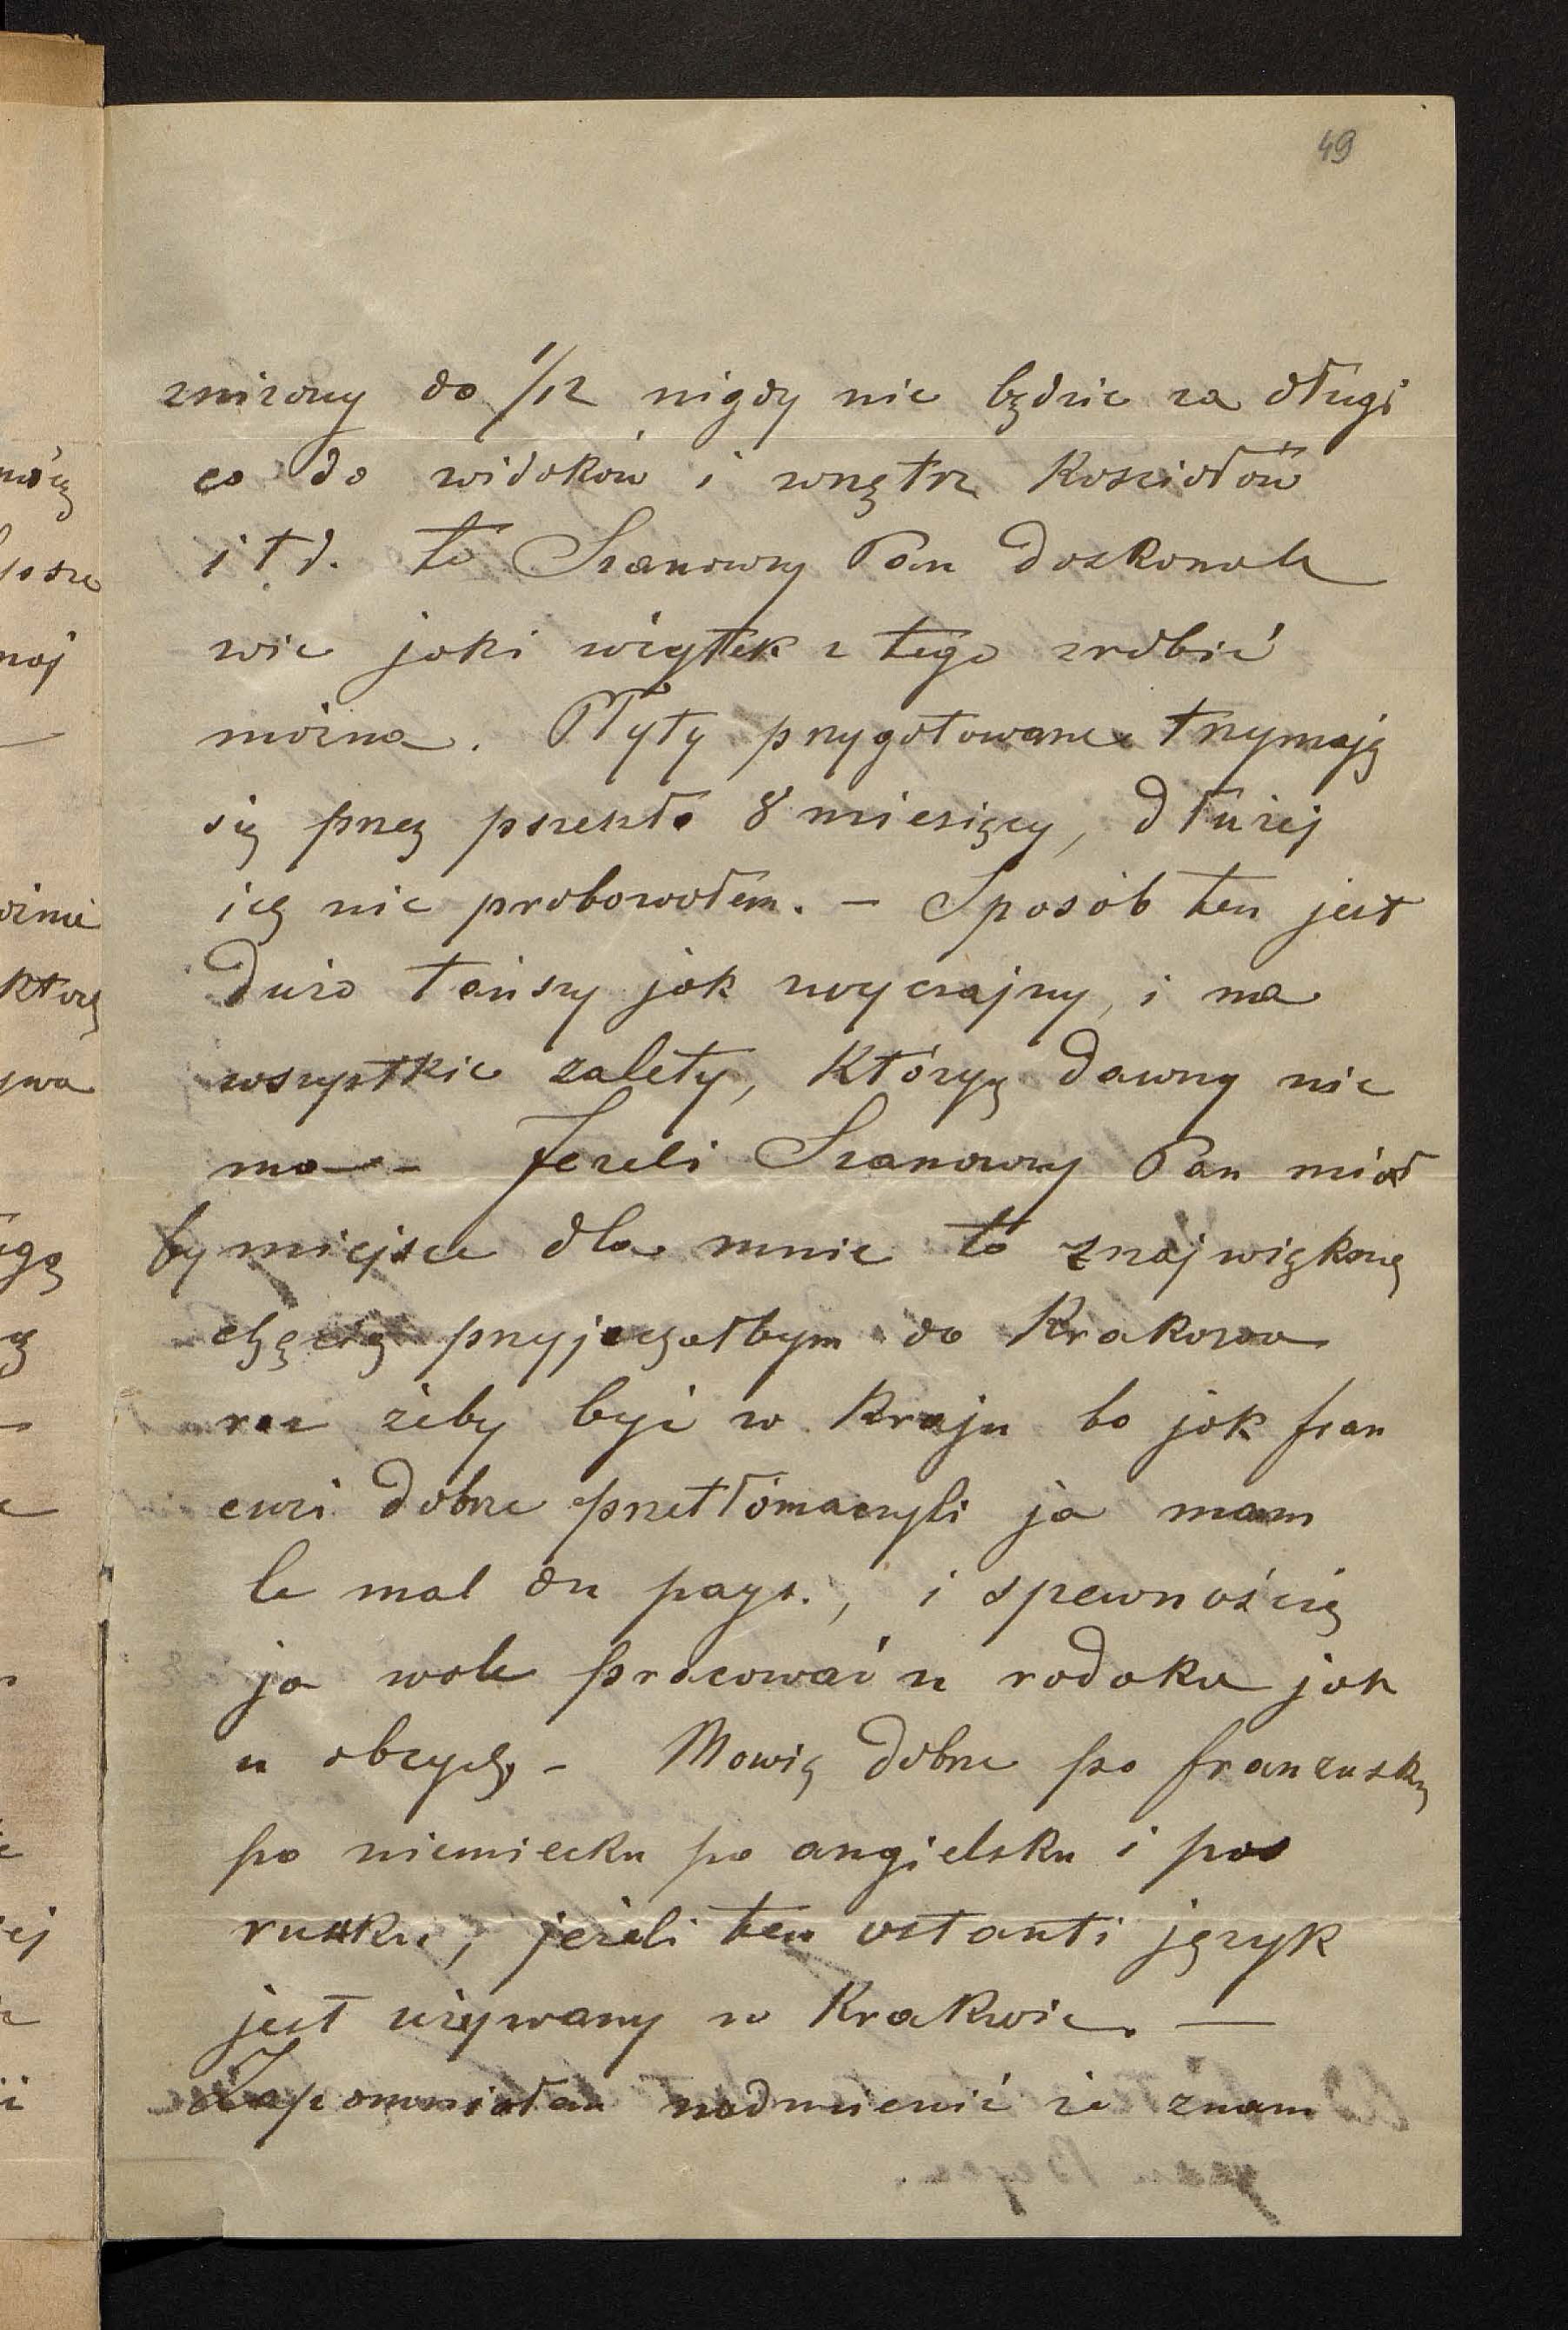 49
zniżony do 1/12 nigdy nie będzie za długi
co do widoków i wnętrz Kosciołów
i t d. to Szanowny Pan doskonale
wie jaki użytek z tego zrobić
można. Płyty przygotowane trzymają
się przez przeszło 8 miesięcy, dłużej
ich nie probowałem. – Sposób ten jest
dużo tańszy jak zwyczajny, i ma
wszystkie zalety, których dawny nie
ma – Jezeli Szanowny Pan miał
by miejsce dla mnie to znajwiększą
chęcią przyjechałbym do Krakowa
raz żeby być w Kraju bo jak fran
cuzi dobrze przetłómaczyli ja mam
le mal du pays., i spewnością
ja wole pracować u rodaka jak
u obcych – Mowię dobrze po franzusku
po niemiecku po angielsku i po
rusku, jeżeli ten ostanti język
jest używany w Krakwie. —
Zapomniałem nadmienić że znam